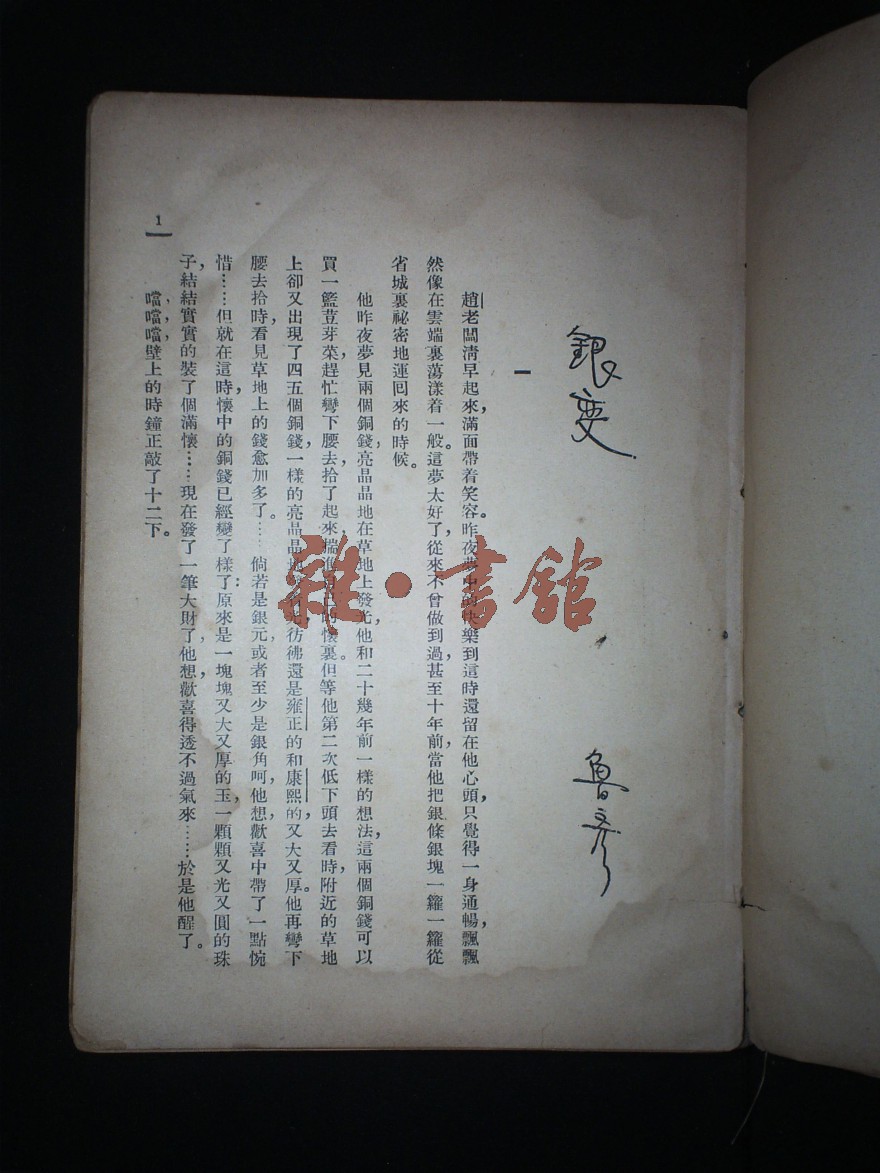 銀变
魯彥
一
趙老闆淸早起來,滿面帶着笑容。昨夜夢中的快樂到這時還留在他心頭,只覺得一身通暢,飄飄
然像在雲端裏蕩漾着一般。這夢太好了,從來不曾做到過,甚至十年前,當他把銀條銀塊一籮一籮從
省城裏祕密地運回來的時候。
他昨夜夢見兩個銅錢,亮晶晶地在草地上發光,他和二十幾年前一樣的想法,這兩個銅錢可以
買一籃荳芽菜,趕忙彎下腰去,拾了起來,揣進自己的懷裏。但等他第二次低下頭去看時,附近的草地
上卻又出現了四五個銅錢,一樣的亮晶晶地發着光,彷彿還是雍正的和康熙的,又大又厚。他再彎下
腰去拾時,看見草地上的錢愈加多了。……倘若是銀元,或者至少是銀角呵,他想,歡喜中帶了一點惋
惜……但就在這時,懷中的銅錢已經變了樣了:原來是一塊塊又大又厚的玉,一顆顆又光又圓的珠
子,結結實實的裝了個滿懷……現在發了一筆大財了,他想,歡喜得透不過氣來……於是他醒了。
噹,噹,噹,壁上的時鐘正敲了十二下。
1
雜·書館